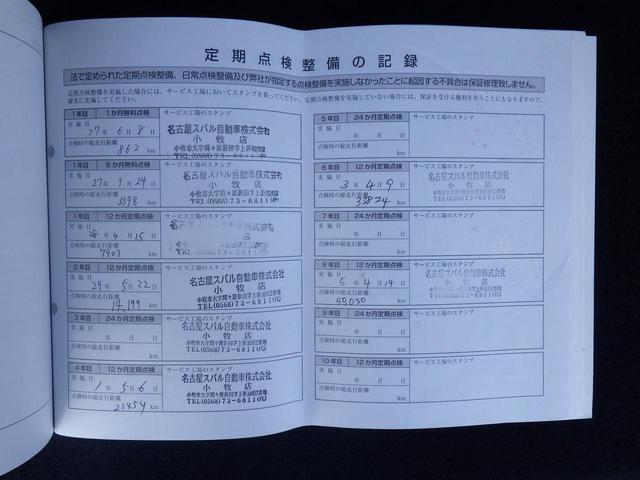 定期点検整備の記録
法で定められた定期点検整備、日常点検整備及び弊社が指定する点検整備を実施しなかったことに起因する不具合は保証修理致しません。
定期点検整備を実施した場合には、サービス工場においてスタンプを貰ってください。定期点検整備を実施していない場合には、保証を受ける権利を失うことにもなりますので、
確実に実施してください。
1年目 1か月無料点検 サービス工場のスタンプ
実施日
27年 6月 8日
点検時の総走行距離
862 km
名古屋スバル自動車株式会社
小牧店
TEL(0568)73-6811(代)
1年目 6か月無料点検 サービス工場のスタンプ
実施日
27年 9月 24日
点検時の総走行距離
3398 km
名古屋スバル自動車株式会社
小牧店
TEL(0568)73-6811(代)
1年目 12か月定期点検 サービス工場のスタンプ
実施日
28年 4月 15日
点検時の総走行距離
7907 km
2年目 12か月定期点検 サービス工場のスタンプ
実施日
29年 5月 22日
点検時の総走行距離
14,199 km
名古屋スバル自動車株式会社
小牧店
TEL(0568)73-6811(代)
3年目 24か月定期点検 サービス工場のスタンプ
実施日
年 月 日
点検時の総走行距離
km
名古屋スバル自動車株式会社
小牧店
TEL(0568)73-6811(代)
4年目 12か月定期点検 サービス工場のスタンプ
実施日
1年 5月 6日
点検時の総走行距離
23454 km
名古屋スバル自動車株式会社
小牧店
TEL(0568)73-6811(代)
5年目 24か月定期点検 サービス工場のスタンプ
実施日
年 月 日
点検時の総走行距離
km
6年目 12か月定期点検 サービス工場のスタンプ
実施日
3年 4月 9日
点検時の総走行距離
33824 km
名古屋スバル自動車株式会社
小牧店
TEL(0568)73-6811(代)
7年目 24か月定期点検 サービス工場のスタンプ
実施日
年 月 日
点検時の総走行距離
km
8年目 12か月定期点検 サービス工場のスタンプ
実施日
5年 4月 14日
点検時の総走行距離
50,030 km
名古屋スバル自動車株式会社
小牧店
TEL(0568)73-6811(代)
9年目 24か月定期点検 サービス工場のスタンプ
実施日
年 月 日
点検時の総走行距離
km
10年目 12か月定期点検 サービス工場のスタンプ
実施日
年 月 日
点検時の総走行距離
km